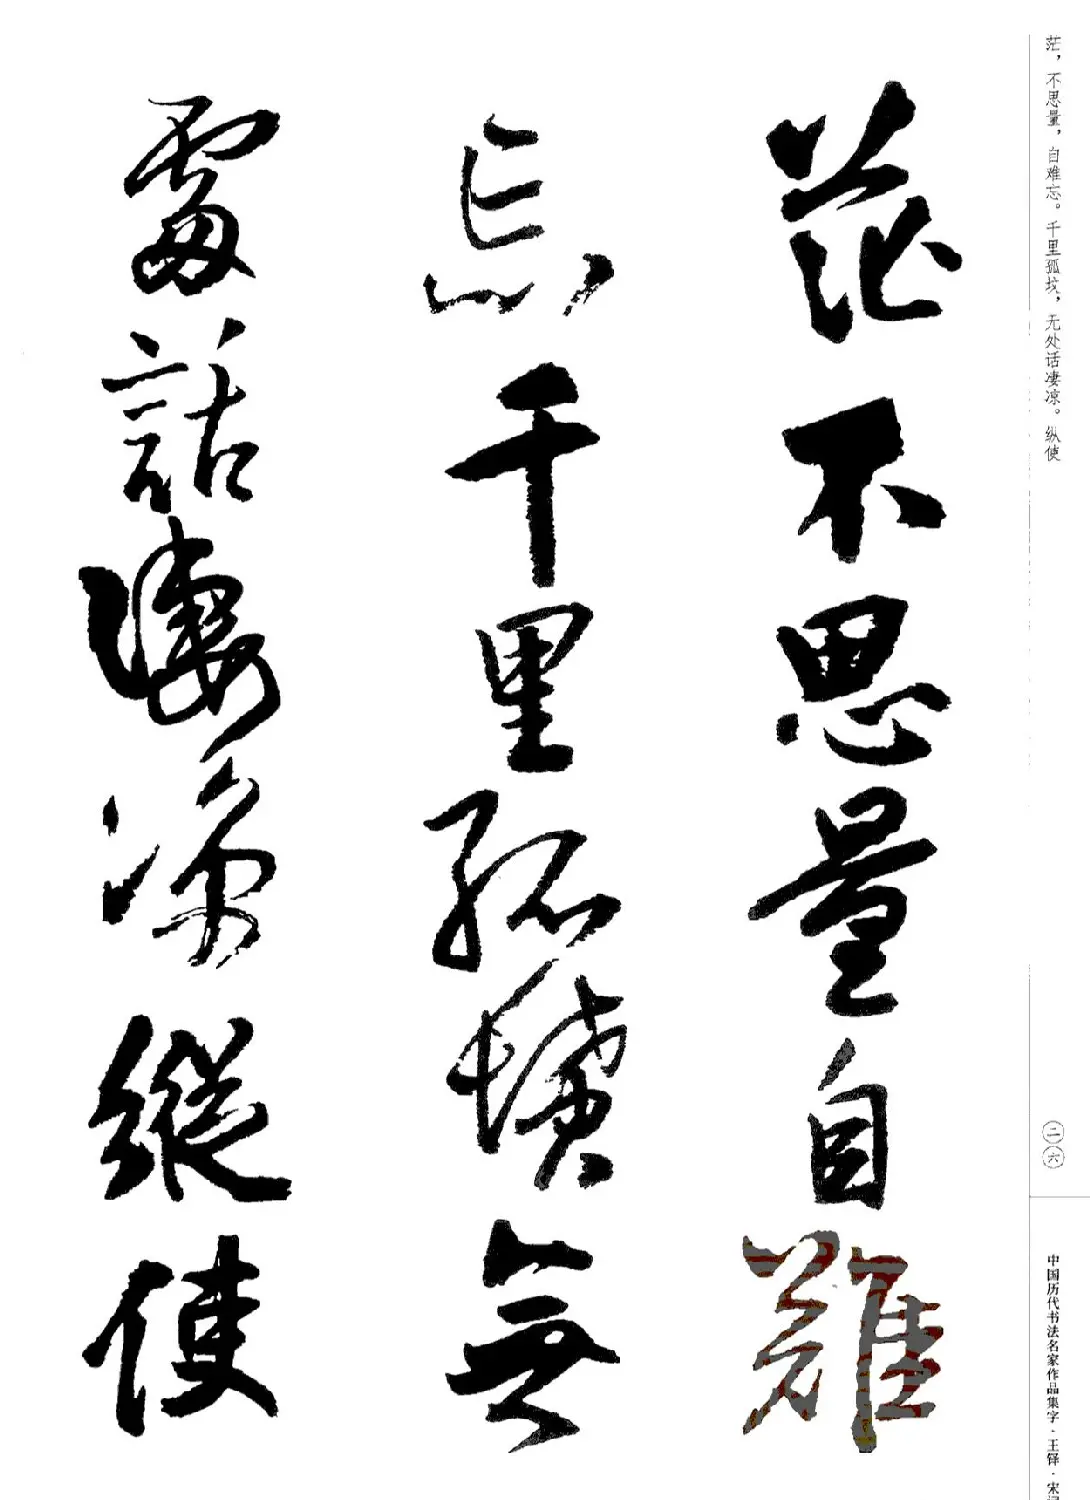 茫不思量自難
忘千里孤墳無
處話凄涼縱使
茫，不思量，自难忘。千里孤坟，无处话凄凉。纵使
二六
中国历代书法名家作品集字·王铎·宋词